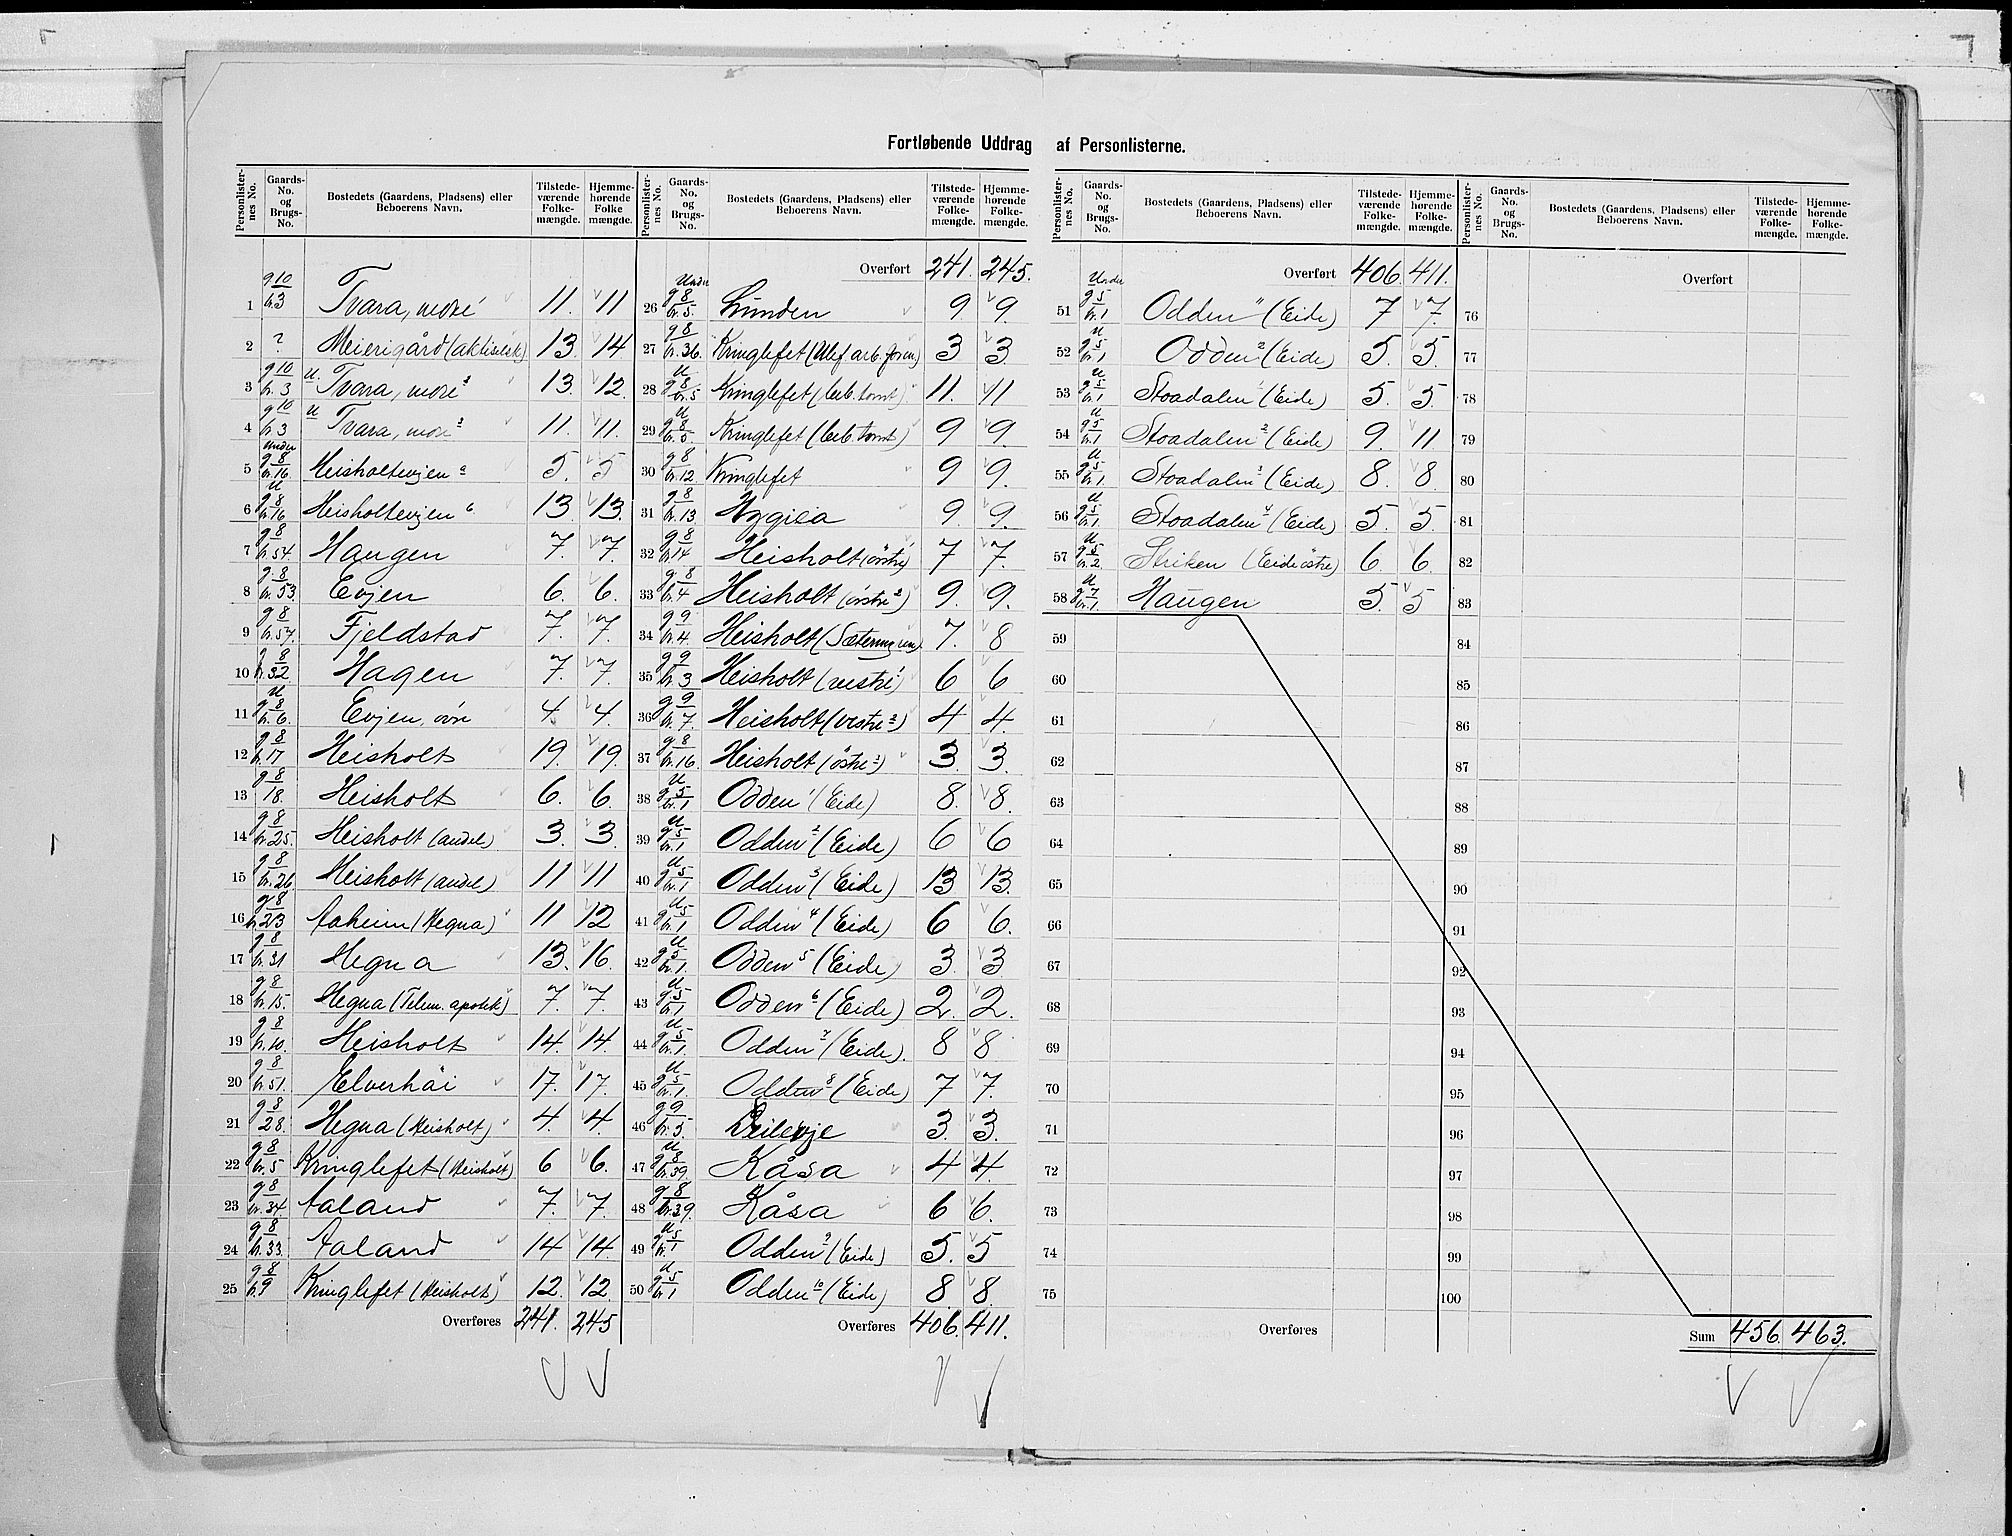 Fortløbende Uddrag af Personlisterne.
Personlister-nes No. Gaards-No. og Brugs-No. Bostedets (Gaardens, Pladsens) eller Beboerens Navn. Tilstede-værende Folke-mængde. Hjemme-hørende Folke mængde.
1 g 10 br. 3 Tvara, nedre¹ 11. 11
2 ? Meierigård (aktieselsk) 13. 14
3 g 10 br. 3 U. Tvara, nedre² 13. 12.
4 g 10 br. 3 U Tvara, nedre³ 11. 11.
5 under g 8 br. 16 Heisholtevjen a 5. 5
6 U g 8 br. 16 Heisholtevjen b 13. 13.
7 g 8 br. 54. Haugen 7. 7.
8 g. 8 br. 53. Evjen 6. 6.
9 g 8 br. 57. Fjeldstad 7. 7.
10 g 8 br. 32. Hagen 7. 7.
11 U g 8 br. 6. Evjen, øvre 4. 4.
12 g 8 br. 17 Heisholt 19. 19.
13 g 8 18. Heisholt 6. 6.
14 g 8 br. 25. Heisholt (andel) 3. 3.
15 g 8 br. 26. Heisholt (andel) 11 11
16 g 8 br. 23 Aaheim (Hegna) 11 12
17 g 8 br. 31 Hegna 13. 16.
18 g 8 br. 15. Hegna (Telem. apotek) 7. 7.
19 g 8 br. 10. Heisholt 14. 14.
20 g 8 br. 51. Elverhöi 17. 17.
21 g 8 28. Hegna (Heisholt) 4. 4.
22 g 8 br. 5 Kringlefet (Heisholt) 6 6.
23 g 8 br. 34. Aaland 7. 7.
24 g 8 br. 33. Aaland 14 14.
25 g 8 br. 9 Kringlefet (Heisholt) 12. 12.
Overføres 241. 245
Personlister-nes No. Gaards-No. og Brugs-No. Bostedets (Gaardens, Pladsens) eller Beboerens Navn. Tilstede-værende Folke-mængde. Hjemme-hørende Folke mængde.
Overført 241. 245.
26 Under g 8 br. 5. Lunden 9 9.
27 g 8 br. 36. Kringlefet (Ulef. arb. foren) 3 3
28 U g 8 br. 5 Kringlefet (arb. tomt) 11. 11
29 U g 8 br. 5. Kringlefet (arb. tomt) 9 9.
30 g 8 br. 12 Kringlefet 9 9.
31 g 8 br. 13 Hygiea 9. 9.
32 g 8 br. 14 Heisholt (östre¹) 7 7.
33 g. 8 br. 4 Heisholt (östre²) 9. 9.
34 g 9 br. 4. Heisholt (Sætermyren) 7. 8
35 g 9 br. 3 Heisholt (vestre¹) 6 6
36 g 9 br. 7. Heisholt (vestre²) 4 4.
37 g 8 br. 16. Heisholt (östre³) 3. 3.
38 U g 5 br. 1 Odden¹ (Eide) 8. 8.
39 U g 5 br. 1 Odden² (Eide) 6 6
40 U g 5 br. 1 Odden³ (Eide) 13 13.
41 U g 5 br. 1 Odden⁴ (Eide) 6 6.
42 U g 5 br. 1. Odden⁵ (Eide) 3. 3.
43 U g. 5 br. 1 Odden⁶ (Eide) 2. 2.
44 U g 5 br. 1. Odden⁷ (Eide) 8 8
45 U g 5 br. 1. Odden⁸ (Eide) 7 7.
46 g 9 br. 5. 3. 3.
47 U g 8 br. 39. Kåsa 4 4.
48 g 8 br. 39. Kåsa 6 6.
49 U g 5 br. 1 Odden⁹ (Eide) 5. 5
50 U g 5 br. 1 Odden¹⁰ (Eide) 8 8.
Overføres 406. 411.
Personlister-nes No. Gaards-No. og Brugs-No. Bostedets (Gaardens, Pladsens) eller Beboerens Navn. Tilstede-værende Folke-mængde. Hjemme-hørende Folke-mængde.
Overført 406. 411.
51 Under g 5 br. 1 Odden¹¹ (Eide) 7 7.
52 U g 5 br. 1 Odden¹² (Eide) 5. 5.
53 U g 5 br. 1 Stoadalen¹ (Eide) 5. 5.
54 U g 5 br. 1 Stoadalen² (Eide) 9. 11.
55 U g 5 br. 1. Stoadalen³ (Eide) 8. 8.
56 U g 5 br. 1. Stoadalen⁴ (Eide) 5. 5.
57 U g 5 br. 2. Striken (Eide östre) 6 6.
58 U g 7 br. 1. Haugen 5. 5
59
60
61
62
63
64
65
66
67
68
69
70
71
72
73
74
75
Overføres
Personlister-nes No. Gaards-No. og Brugs-No. Bostedets (Gaardens, Pladsens) eller Beboerens Navn. Tilstede-værende Folke-mængde. Hjemme-hørende Folke-mængde.
Overført
76
77
78
79
80
81
82
83
84
85
86
87
88
89
90
91
92
93
94
95
96
97
98
99
100
Sum 456. 463.